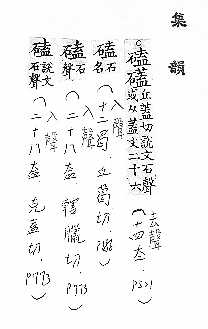 集韻
磕𥗘 丘蓋切說文石聲或从蓋文二十六（去聲 十四太．P521）
磕 石名（入聲 十二曷．丘葛切．P68）
磕 石聲（入聲 二十八盍．轄臘切．P773）
磕 說文石聲（入聲 二十八盍．克盍切．P773）